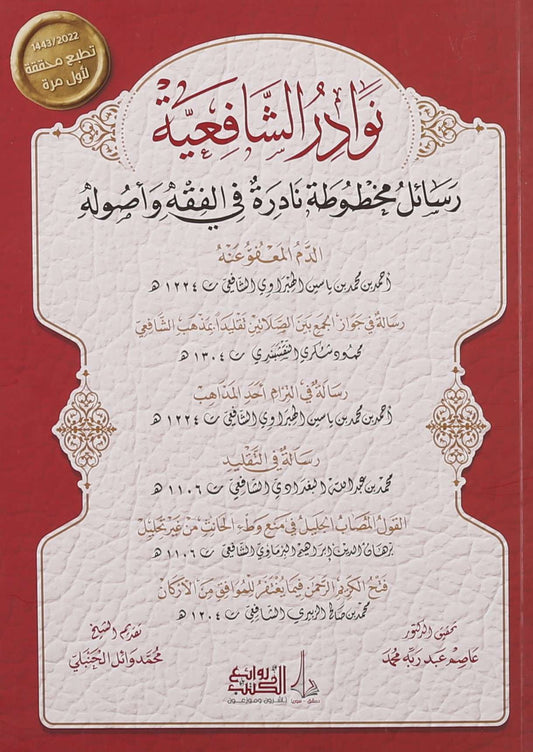 1443/2022
تطبع محققة
لأول مرة
نَوَادِرُ الشَّافِعِيَّة
رَسَائِلُ مَخْطُوطَة نَادِرَةٌ فِي الفِقْهِ وَأُصُولِهِ
الدَّمُ المَعْفُوُّ عَنْهُ
أحمد بن محمد بن ياسين الحِبْرَاوِي الشافعي ت ١٢٢٤ هـ
رِسَالَةٌ فِي جَوَازِ الجَمْعِ بَيْنَ الصَّلَاتَيْنِ تَقْلِيداً بِمَذْهَبِ الشَّافِعِي
محمود شكري النقشبندي ت ١٣٠٤ هـ
رِسَالَةٌ فِي التِزَامِ أَحَدِ المَذَاهِبِ
أحمد بن محمد بن ياسين الحِبْرَاوِي الشافعي ت ١٢٢٤ هـ
رِسَالَةٌ فِي التَّقْلِيدِ
محمد بن عبد الله البغدادي الشافعي ت ١١٠٦ هـ
القَوْلُ المُصَابُ الجَلِيلُ فِي مَنْعِ وَطْءِ الحَانِثِ مِنْ غَيْرِ تَحْلِيلٍ
برهان الدين إبراهيم البرماوي الشافعي ت ١١٠٦ هـ
فَتْحُ الكَرِيمِ الرَّحْمَنِ فِيمَا يُغْتَفَرُ لِلْمُوَافِقِ مِنَ الأَرْكَانِ
محمد بن صالح الزبيري الشافعي ت ١٢٠٤ هـ
تحقيق الدكتور
عاصم عبد ربه محمد
تقديم الشيخ
محمد وائل الحنبلي
روائع الكتب
ناشرون وموزعون
دمشق - سوريا